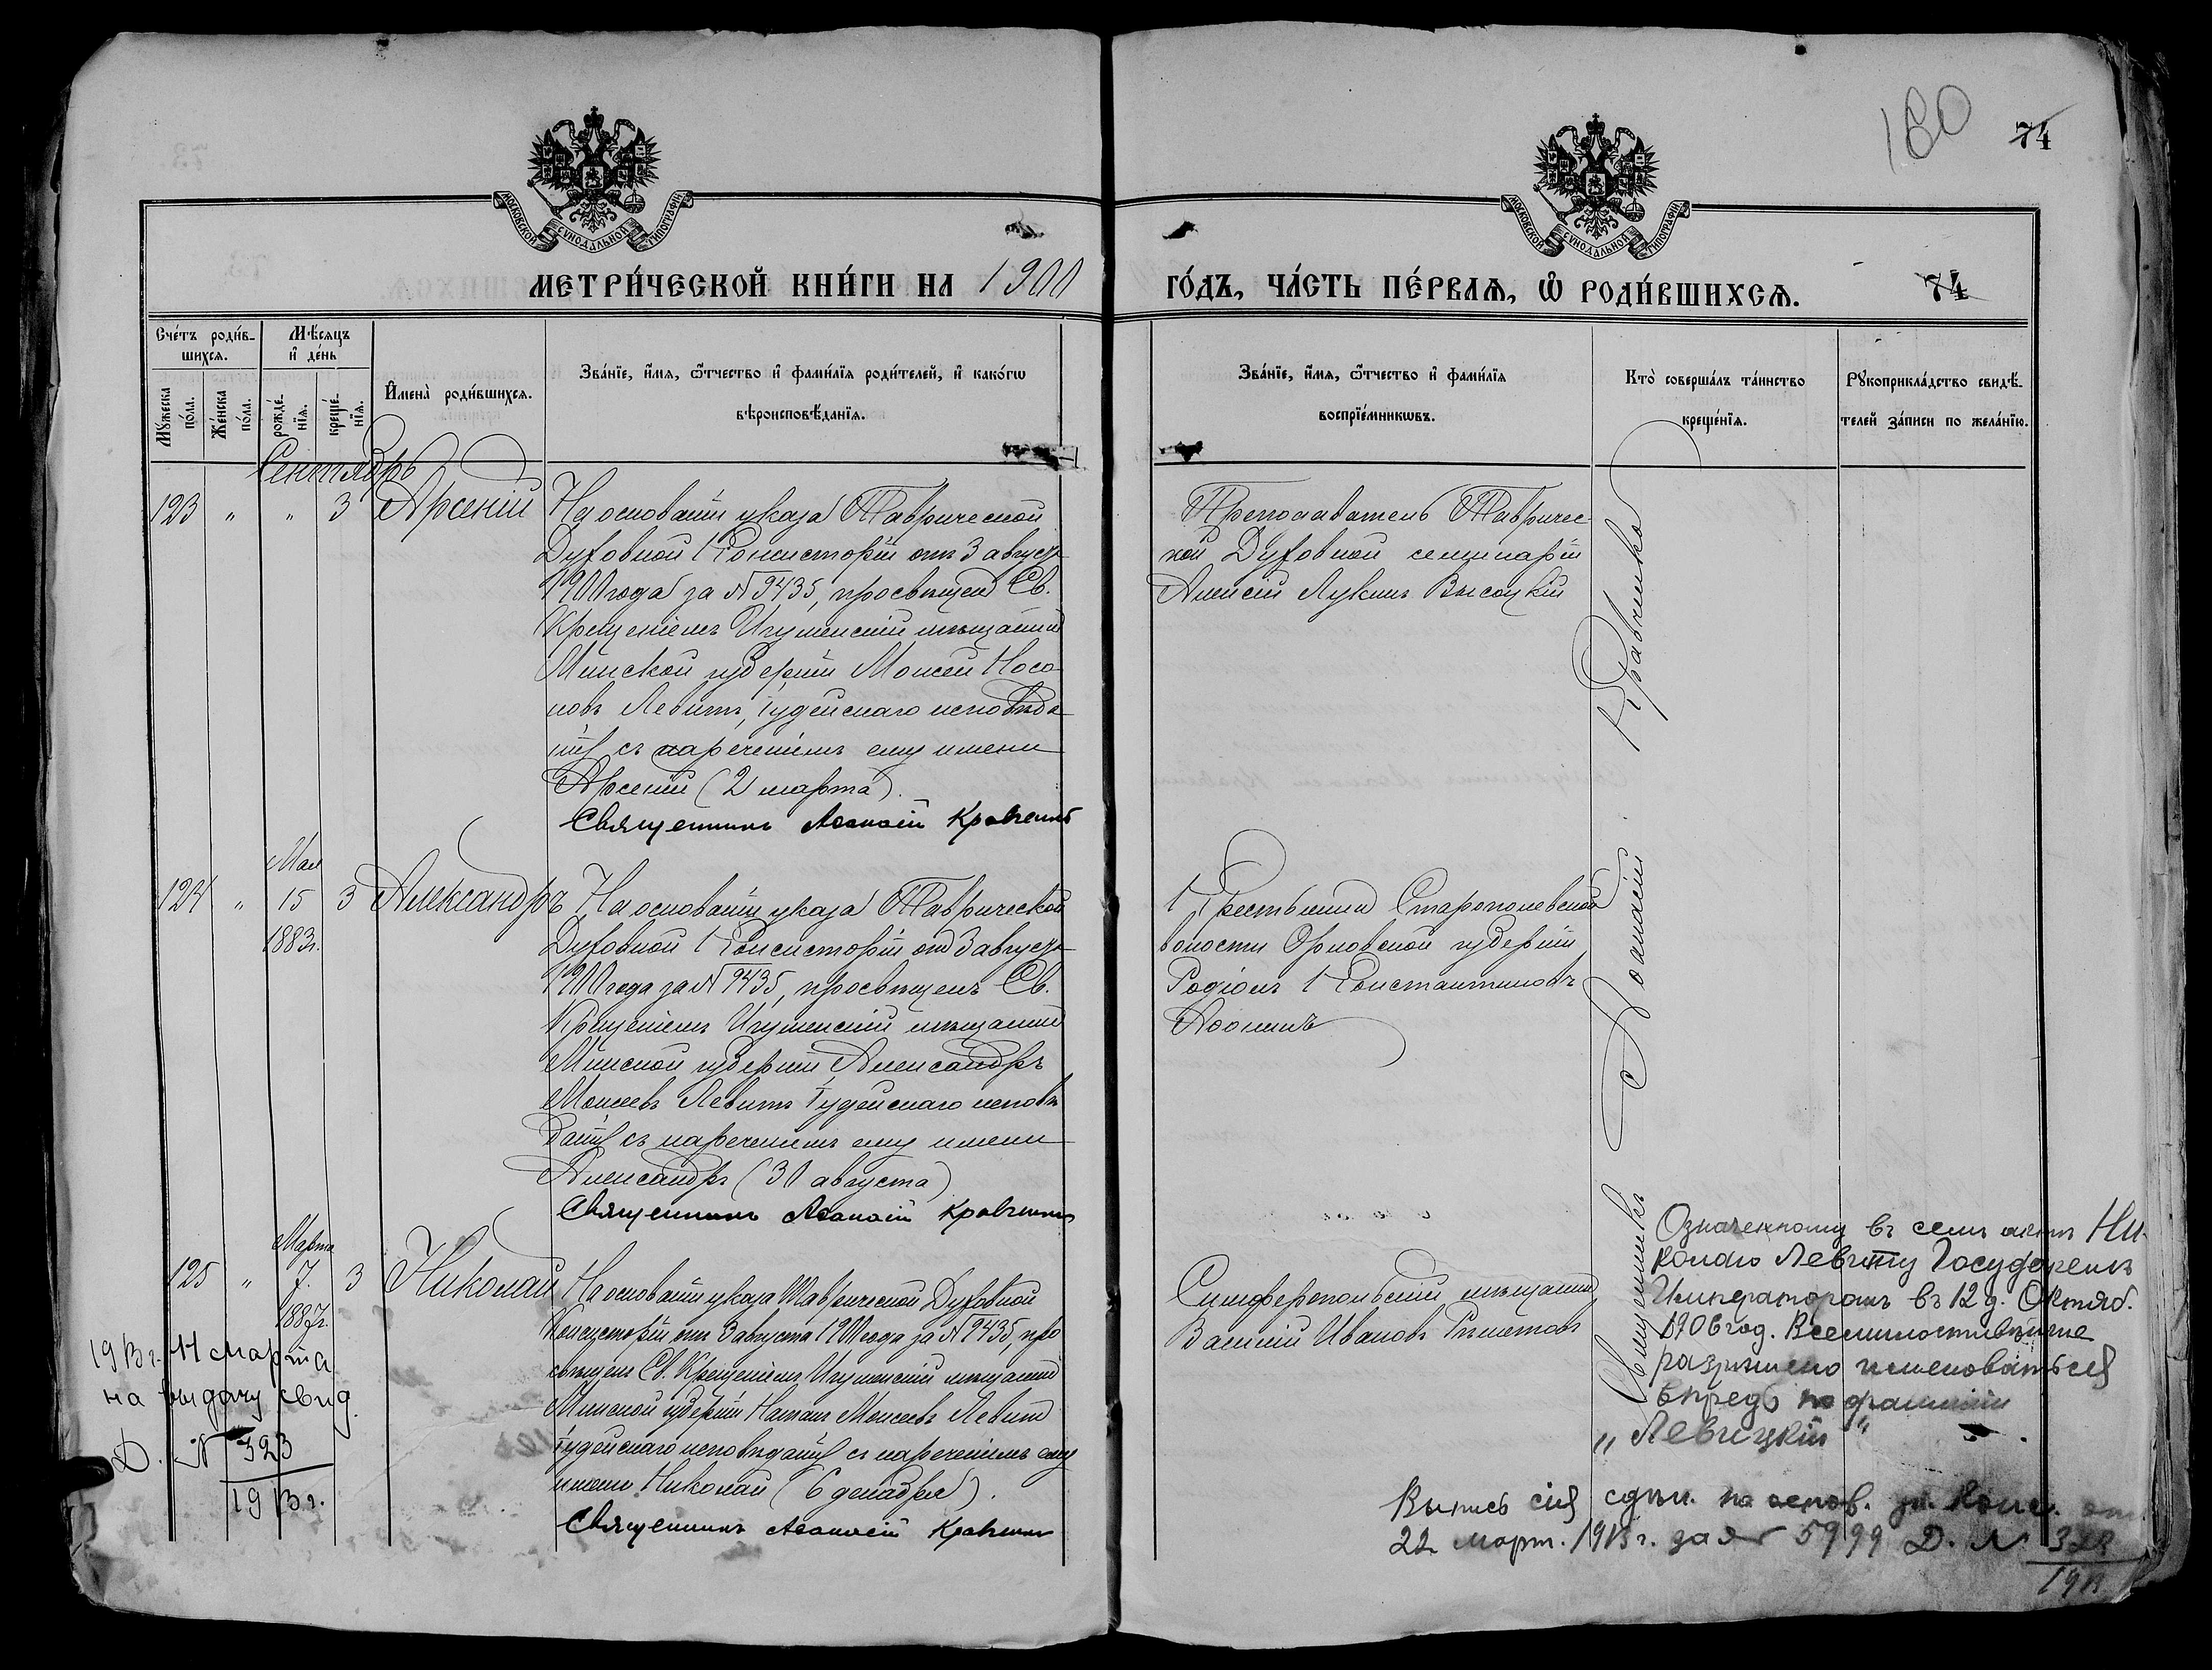 180
74
МОСКОВСКОЙ СѴНОДАЛЬНОЙ ТИПОГРАФІИ
МОСКОВСКОЙ СѴНОДАЛЬНОЙ ТИПОГРАФІИ
МЕТРИ́ЧЕСКОЙ КНИ́ГИ НА 1900
ГО́ДЪ, ЧА́СТЬ ПЕ́РВАѦ, Ѽ РОДИ́ВШИХСѦ.
74
Счетъ роди́в-
шихсѧ.
Мѣ́сѧцъ
и҆ де́нь
Мꙋ́жеска
по́ла.
Же́нска
по́ла.
рожде́-
нїѧ.
креще́-
нїѧ.
И҆мена̀ роди́вшихсѧ.
Зва́нїе, и҆́мѧ, ѻ҆́тчество и҆ фами́лїѧ роди́телей, и҆ како́гѡ
вѣроисповѣ́данїѧ.
Зва́нїе, и҆́мѧ, ѻ҆́тчество и҆ фами́лїѧ
воспрїе́мникѡвъ.
Кто̀ соверша́лъ та́инство
креще́нїѧ.
Рꙋкоприкла́дство свидѣ́-
телей за́писи по жела́нїю.
Сентябрь
123 „ „ 3 Арсеній
На основаніи указа Таврической
Духовной Консисторіи отъ 3 августа
1900 года за № 9435, просвѣщенъ Св.
Крещеніемъ Игуменскій мѣщанинъ
Минской губерніи Моисей Носо-
новъ Левитъ, іудейскаго исповѣда-
нія съ нареченіемъ ему имени
Арсеній (2 марта).
Священникъ Аѳанасій Кравченко
Преподаватель Тавричес-
кой Духовной семинаріи
Алексій Лукинъ Высоцкій
Мая
124 „ 15 3 Александръ
1883 г.
На основаніи указа Таврической
Духовной Консисторіи отъ 3 августа
1900 года за № 9435, просвѣщенъ Св.
Крещеніемъ Игуменскій мѣщанинъ
Минской губерніи Александръ
Моисеевъ Левитъ іудейскаго исповѣ-
данія съ нареченіемъ ему имени
Александръ (30 августа)
Священникъ Аѳанасій Кравченко
Крестьянинъ Старополевской
волости Орловской губерніи
Родіонъ Константиновъ
Марта
125 „ 7. 3 Николай
1887 г.
На основаніи указа Таврической Духовной
Консисторіи отъ 3 августа 1900 года за № 9435, про
свѣщенъ Св. Крещеніемъ Игуменскій мѣщанинъ
Минской губерніи Натанъ Моисеевъ Левитъ
іудейскаго исповѣданія съ нареченіемъ ему
имени Николай (6 декабря).
Священникъ Аѳанасій Кравченко
Симферопольскій мѣщанинъ
Василій Ивановъ Рѣшетовъ
Священникъ Аѳанасій Кравченко
1913 г. 11 марта
на выдачу свид.
Д. № 323
1913 г.
Означенному въ семъ актѣ Ни-
колаю Левиту Государемъ
Императоромъ въ 12 д. Октяб.
1906 год. Всемилостивѣйше
разрѣшено именоваться
впредь по фамиліи
„Левицкій“
Выпись сія сдѣл. на основ. ук. Конс. от
22 март. 1913 г. за № 5999 Д. № 323
1913